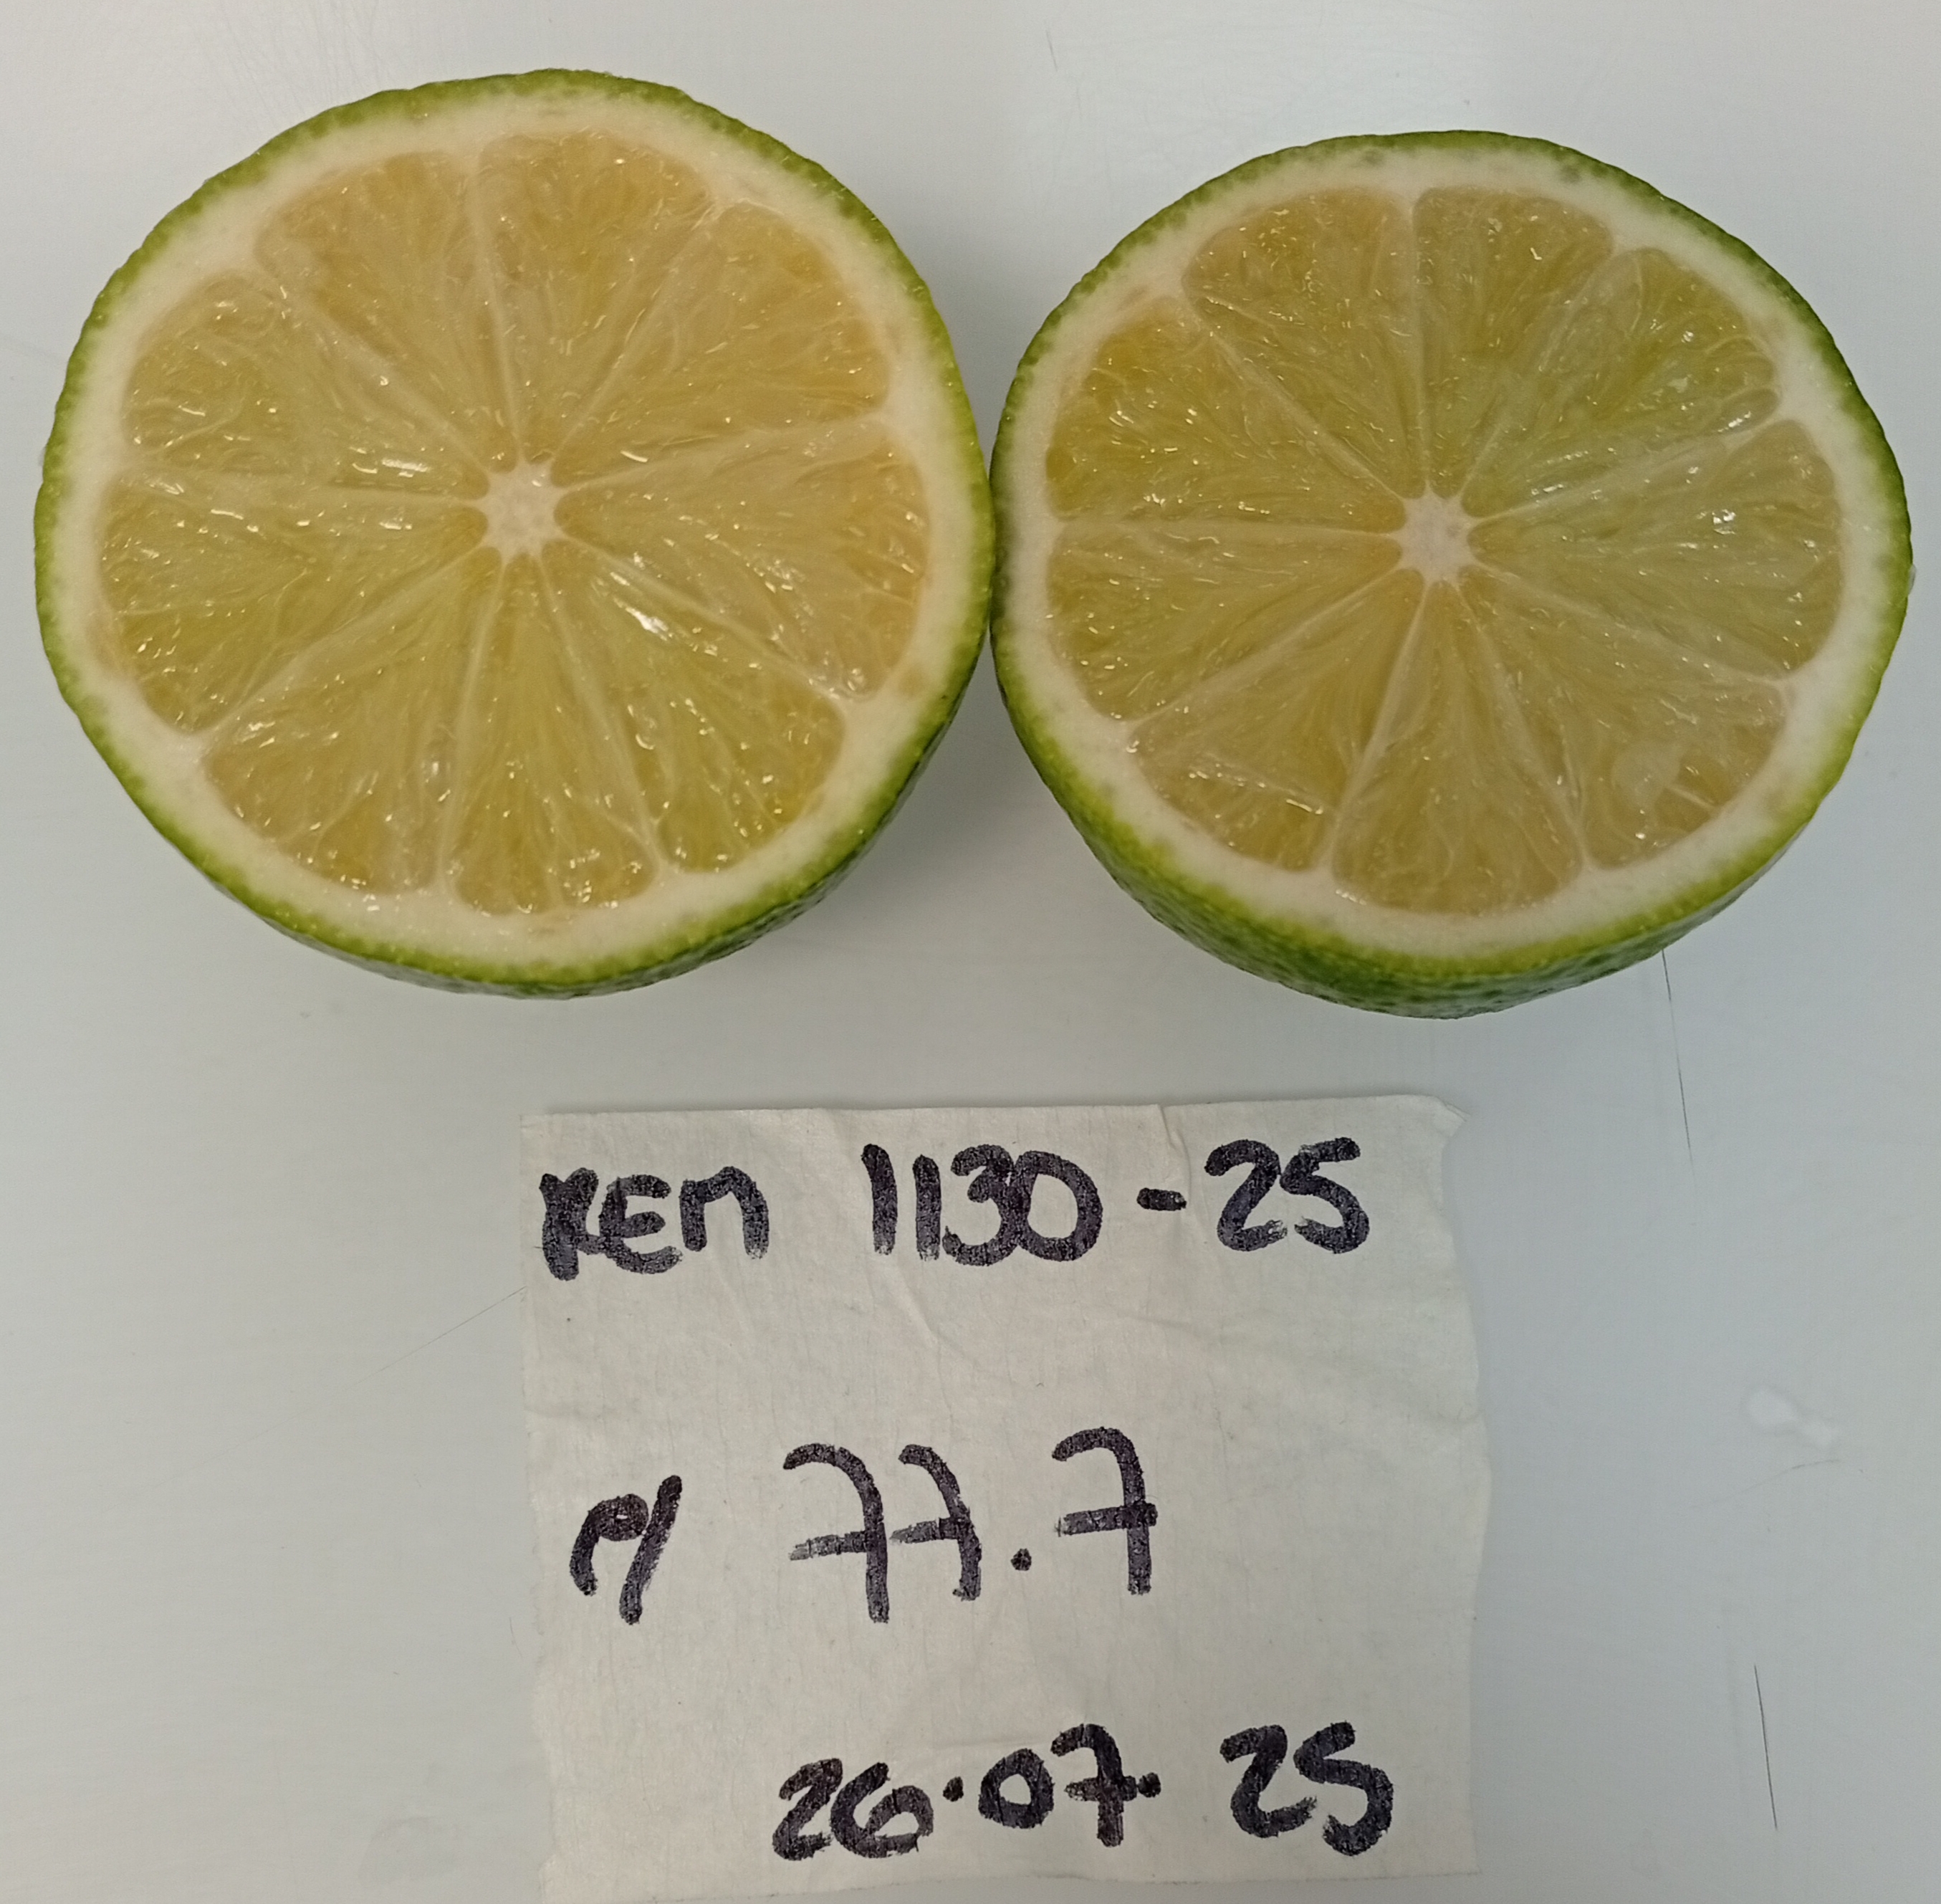 REM 1130-25
M 77.7
26.07.25